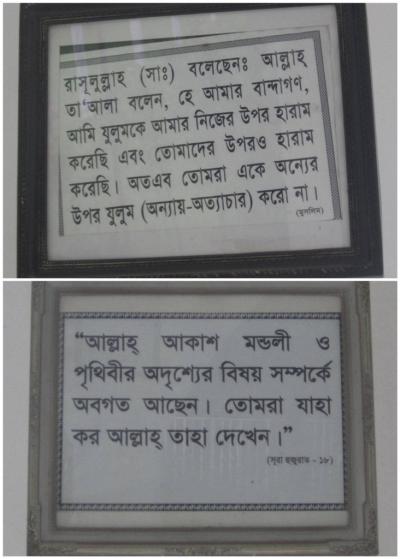 রাসূলুল্লাহ্ (সাঃ) বলেছেনঃ আল্লাহ্
তা'আলা বলেন, হে আমার বান্দাগণ,
আমি যুলুমকে আমার নিজের উপর হারাম
করেছি এবং তোমাদের উপরও হারাম
করেছি। অতএব তোমরা একে অন্যের
উপর যুলুম (অন্যায়-অত্যাচার) করো না।
(মুসলিম)
“আল্লাহ্ আকাশ মন্ডলী ও
পৃথিবীর অদৃশ্যের বিষয় সম্পর্কে
অবগত আছেন। তোমরা যাহা
কর আল্লাহ্ তাহা দেখেন।”
(সূরা হুজুরাত - ১৮)